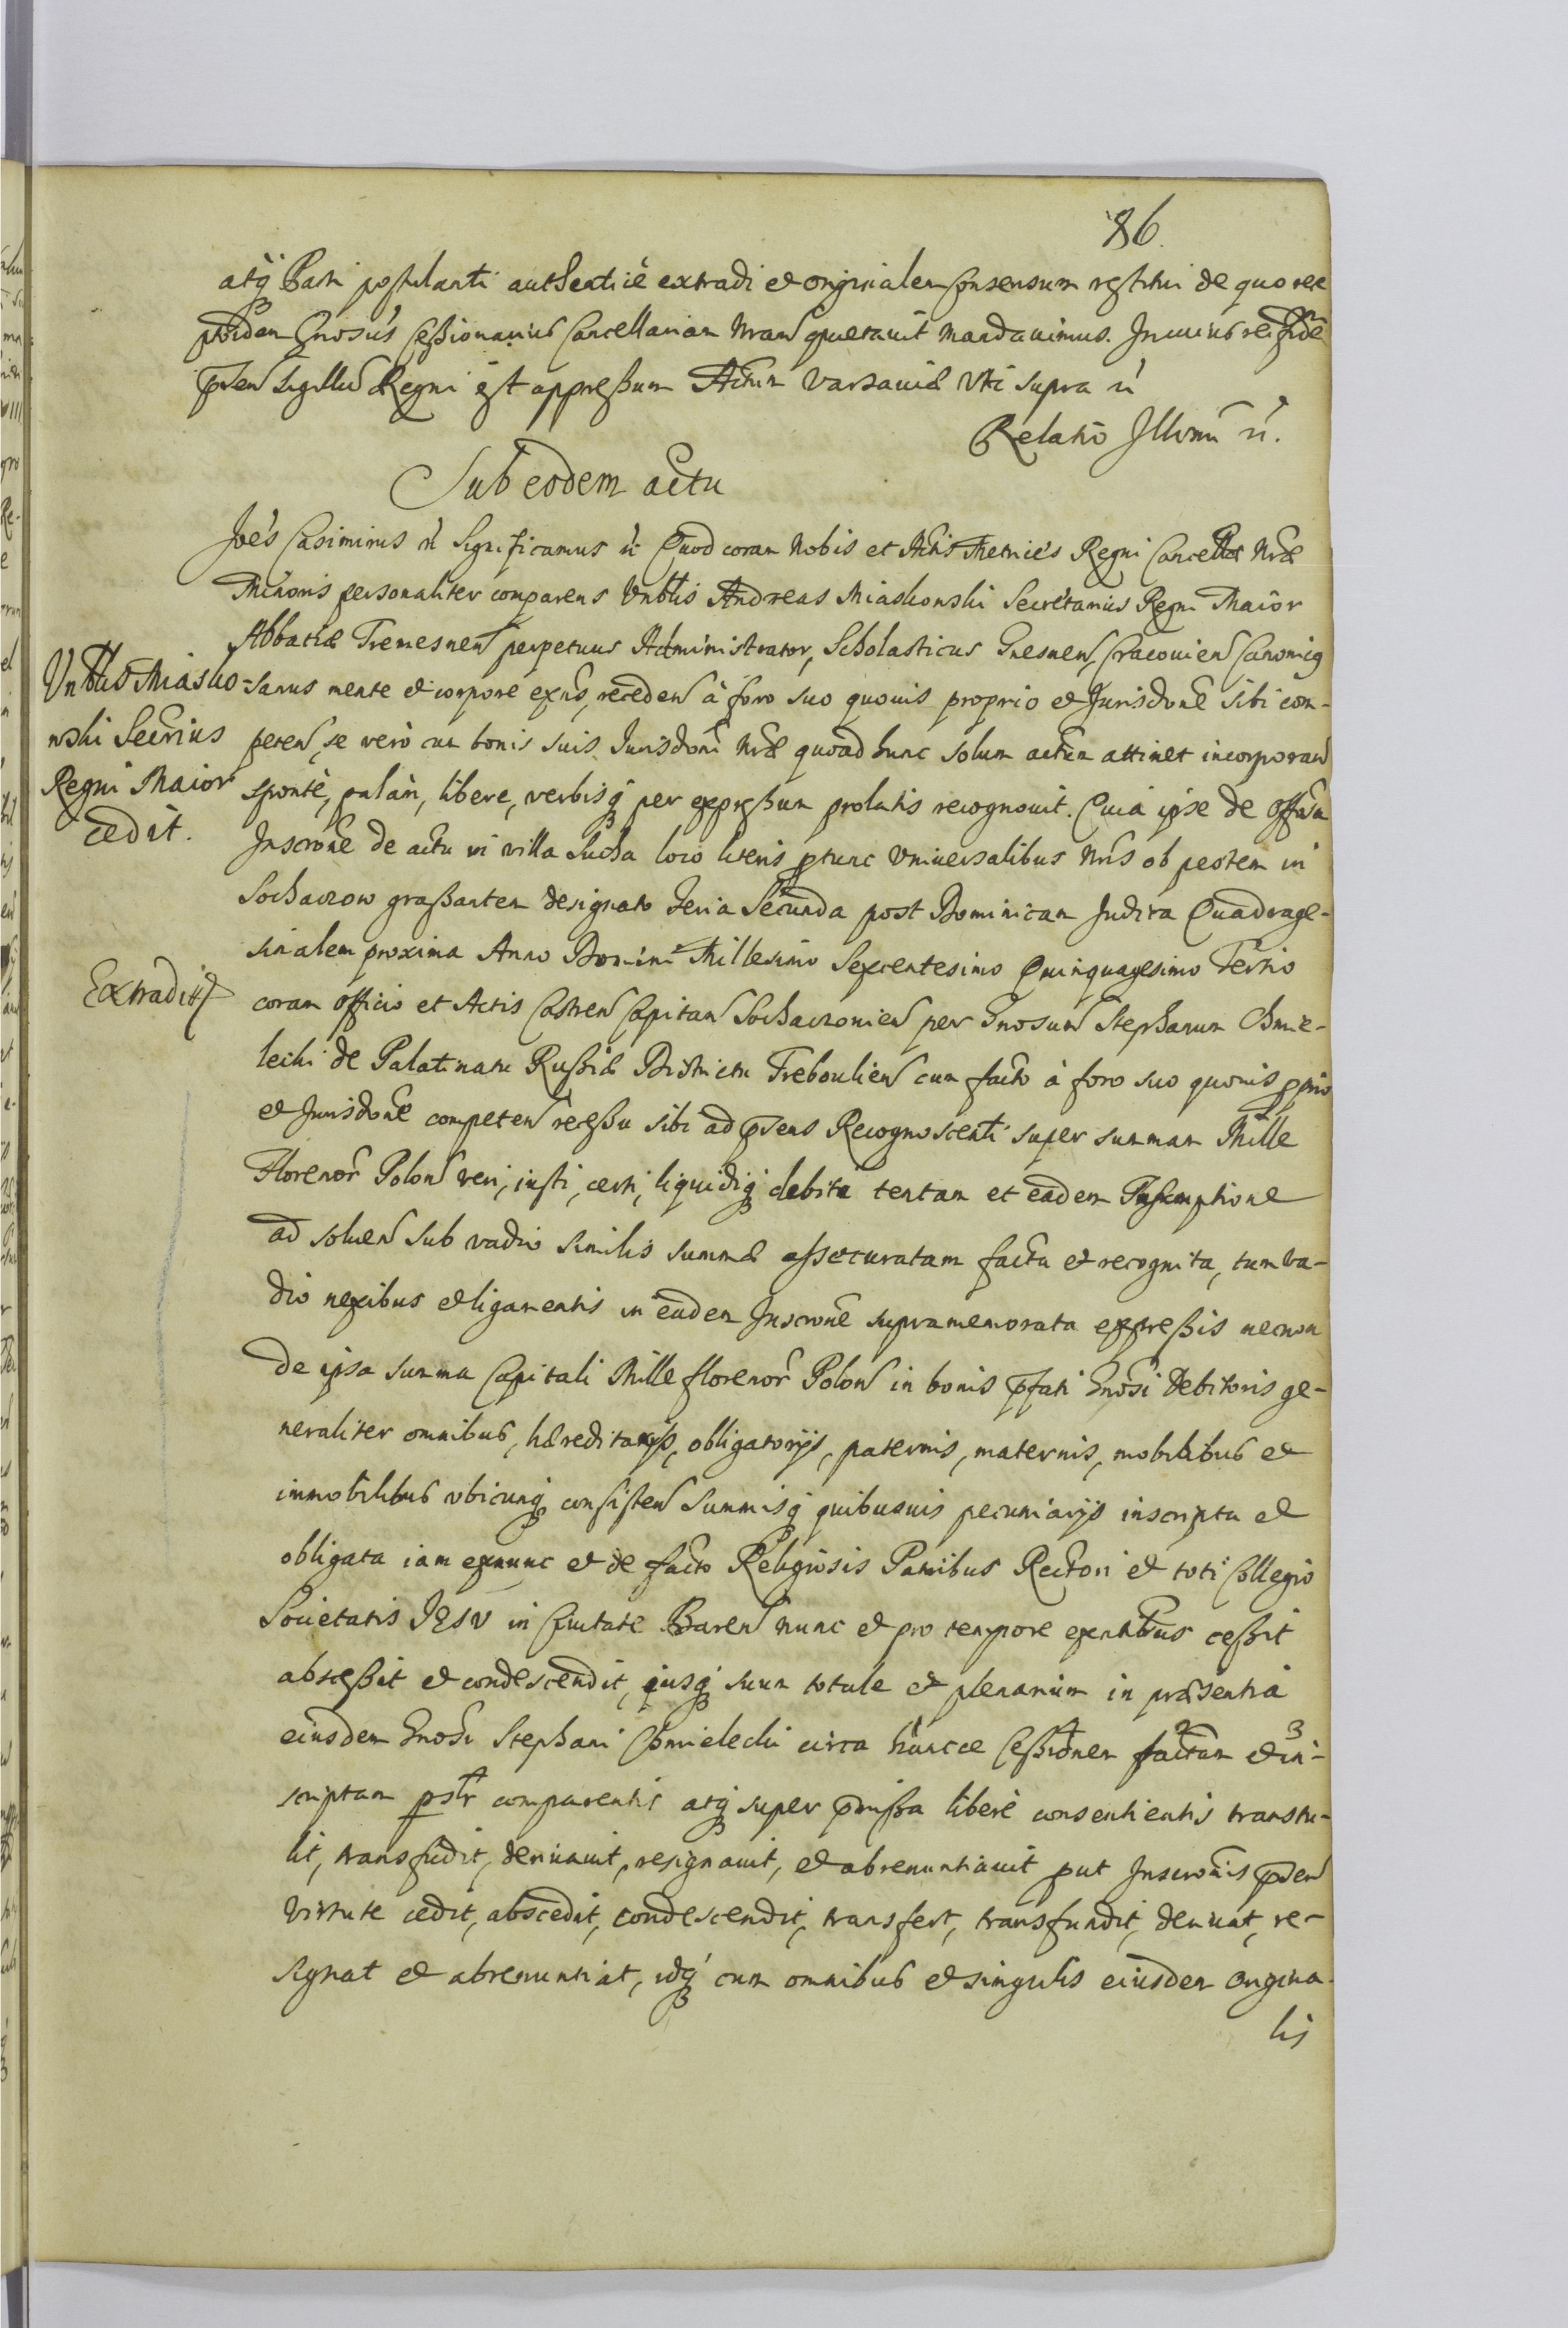 86
atq̃ Parti postulanti authenticè extradi et originalem Consensum restitui de quo rec
pridem Gnosus Cessionarius Cancellariam Nram quietauit mandauimus. In cuius rei fidē
p̄sen Sigillū Regni est appressum Actum Varsauiæ Vti supra ũ
Relatio Illomi ũ.
Sub eodem actu
Joēs Casimirus ũ Significamus ũ Quod coram Nobis et Actis Metrices Regni Cancellæ Nræ
Minoris personaliter comparens Vnblis Andreas Miaskonski Secretarius Regni Maior
Abbatiæ Tremesnen perpetuus Administrator, Scholasticus Gnesnen, Cracouien Canonicg
Vnblis Miasko-
nski Secrius
Regni Maior
cedit.
sanus mente et corpore exñs, receden à foro suo quouis proprio et Jurisdone sibi com-
peten, se verò cum bonis suis Jurisdoni Nræ quoad hunc solum actum attinet incorporan
spontè, palàm, libere, verbisq̃ per expressum prolatis recognouit. Quia ipse de offūsa
Inscrone de actu in villa Sucha loco literis ptunc Vniuersalibus Nris ob pestem in
Sochaczow grassantem designato Feria Secunda post Dominicam Judica Quadrage-
simalem proxima Anno Domini Millesimo Sexcentesimo Quinquagesimo Tertio
Extradit
coram officio et Actis Castren Capitan Sochaczouien per Gnosum Stephanum Chmie-
lecki de Palatinatu Russiæ Districtu Treboulien cum facto à foro suo quouis pprio
et Jurisdone competen recessu sibi ad p̄sens Recognoscenti super summam Mille
Florenor Polon veri, iusti, certi, liquidiq̃ debiti tentam et eadem Inscriptione
ad soluen sub vadio similis summæ assecuratam facta et recognita, tum va-
dio nexibus et ligamentis in eadem Inscrone supramemorata expressis necnon
de ipsa summa Capitali Mille florenor Polon in bonis p̄fati Gnosi Debitoris ge-
neraliter omnibus, hæreditarijs, obligatorijs, paternis, maternis, mobilibus et
immobilibus vbicunq̃ consisten Summisq̃ quibusuis pecuniarijs inscripta et
obligata iam exnunc et de facto Religiosis Patribus Rectori et toti Collegio
Societatis JESV in Ciuitate Baren nunc et pro tempore exntibus cessit
abscessit et condescendit, iusq̃ suum totale et plenarium in præsentia
eiusdem Gnosi Stephani Chmielecki circa hancce Cessionem factam et in-
scriptam psltr comparentis atq̃ super p̄missa liberè consentientis transtu-
lit, transfudit, deriuauit, resignauit, et abrenuntiauit put Inscronis p̄sen
virtute cedit, abscedit, condescendit, transfert, transfundit, deriuat, re-
signat et abrenuntiat, idq̃ cum omnibus et singulis eiusdem origina-
lis